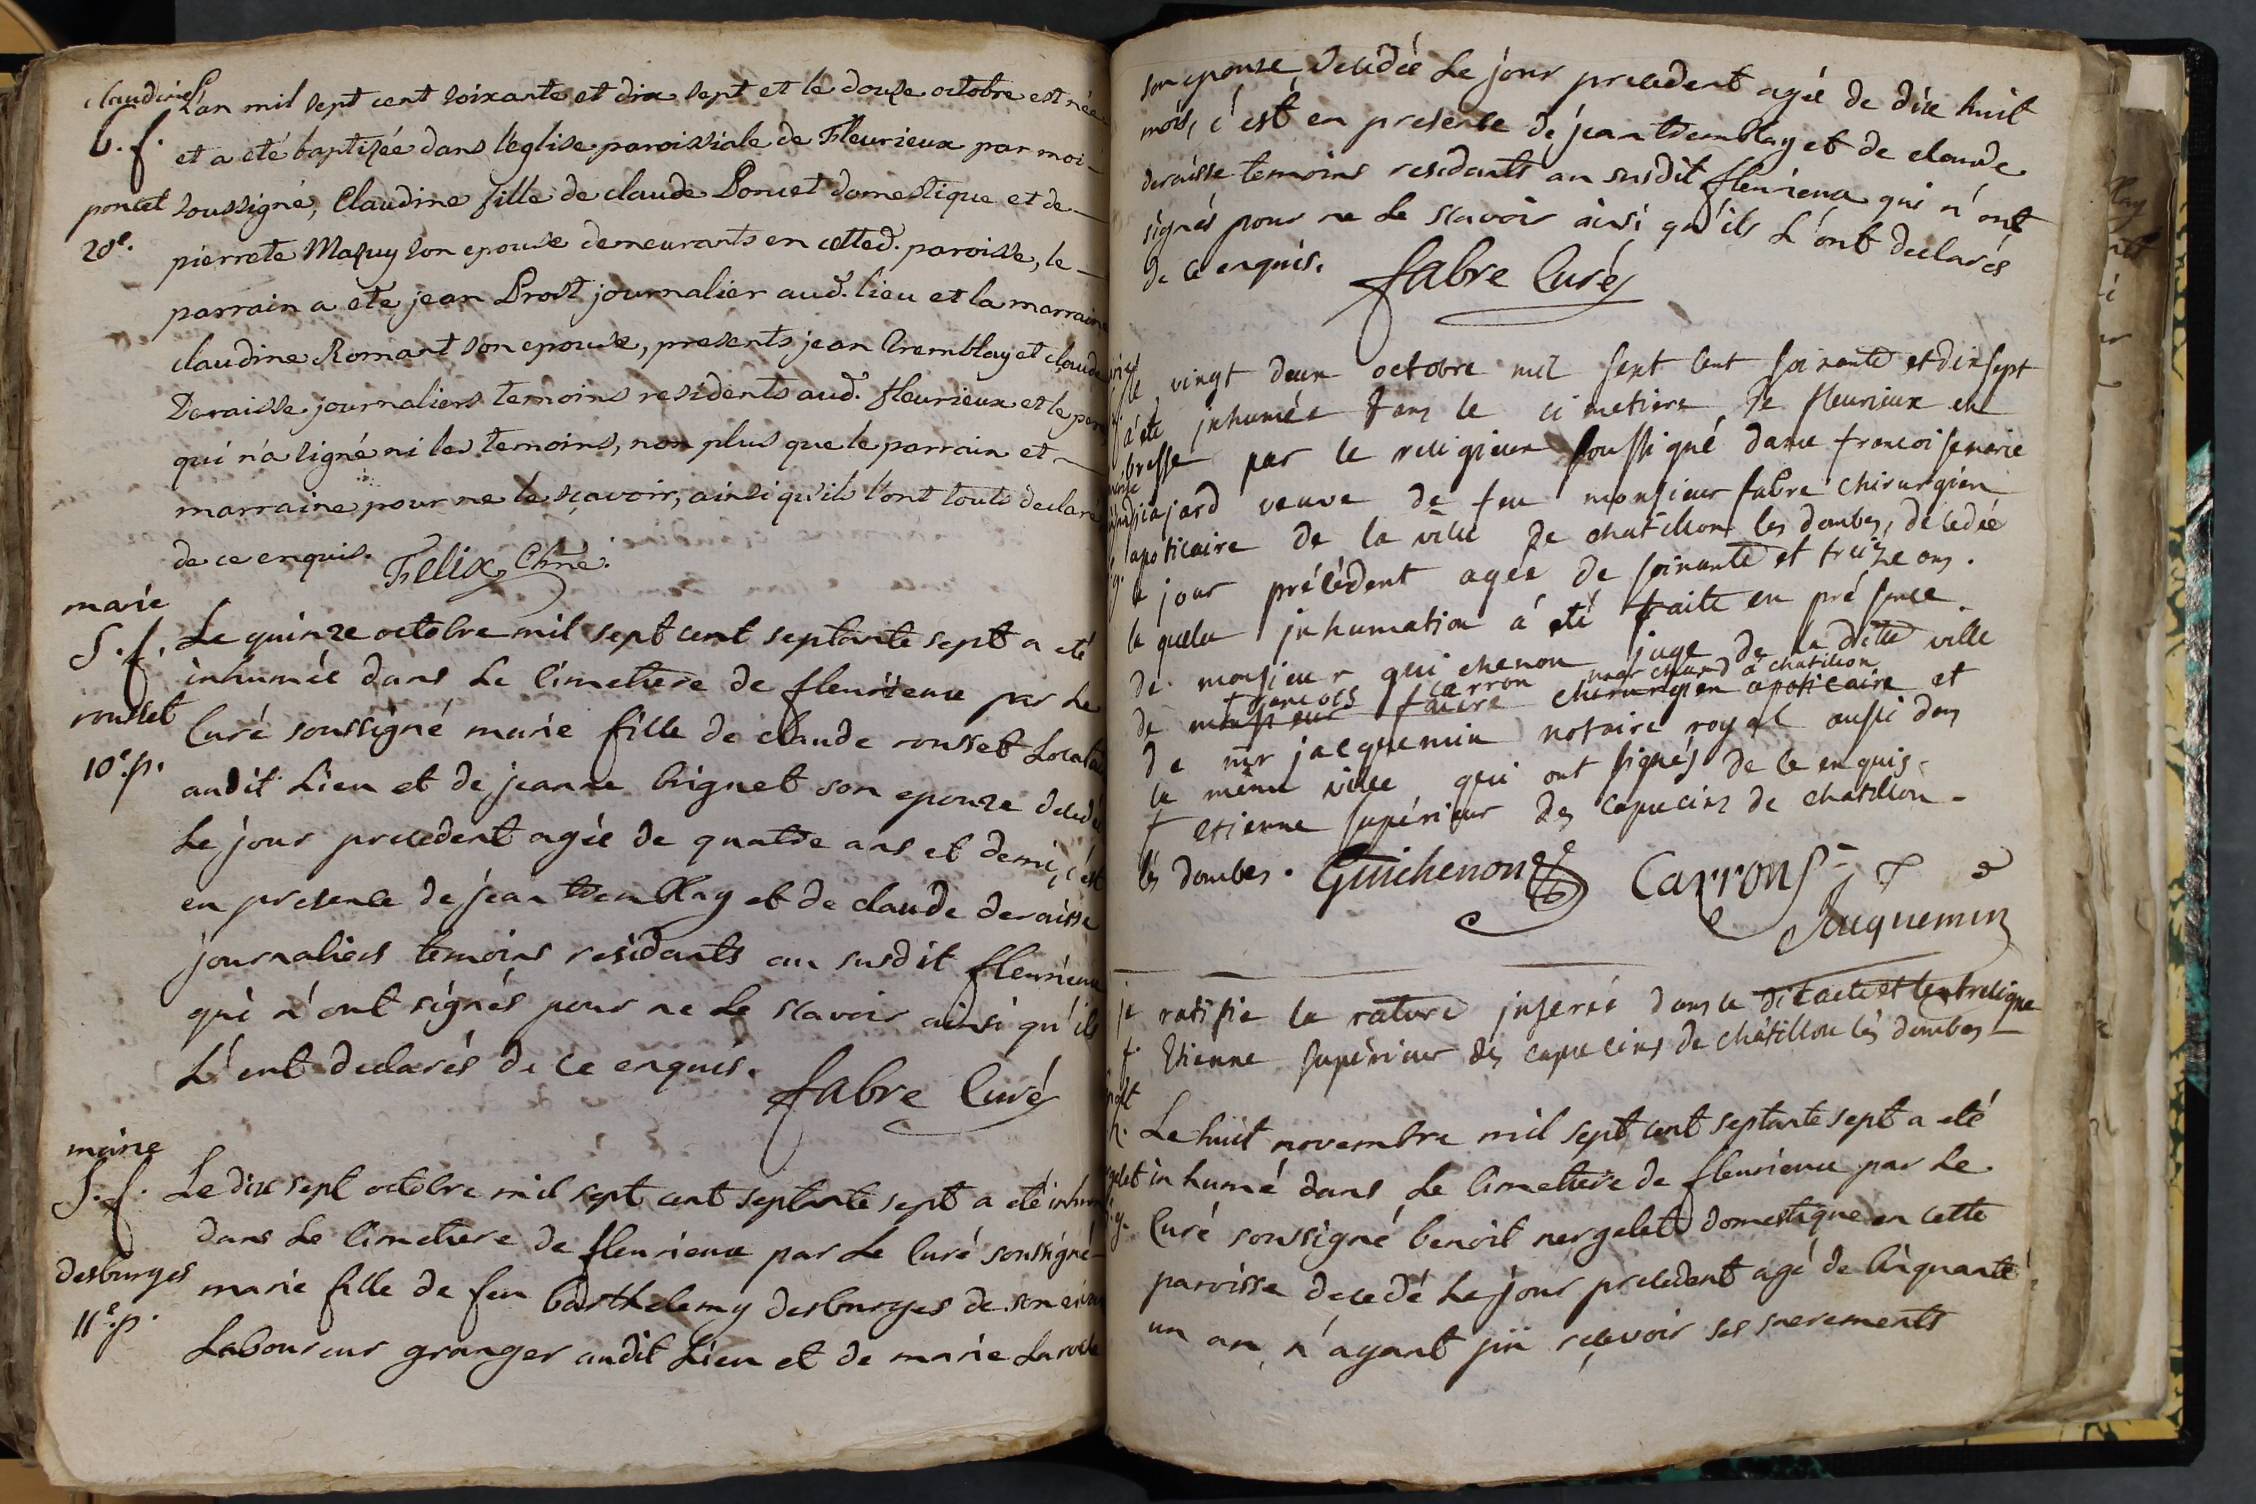 claudine
b. f.
poncet
28e.
L'an mil sept cent soixante et dix sept et le douze octobre est née
et a eté baptizée dans l'eglise paroissiale de Fleurieux par moi
soussigné, Claudine fille de claude Poncet domestique et de
pierrete Mazuy son epouse demeurants en cetted. paroisse, le
parrain a ete jean Prost journalier aud. lieu et la marraine
claudine Romant son epouse, presents jean Tremblay et claude
Deraisse journaliers temoins residents aud. fleurieux et le pere
qui n'a signé ni les temoins, non plus que le parrain et
marraine pour ne le sçavoir, ainsi qu'ils l'ont touts declaré
de ce enquis. Felix, Chne.
marie
S. f.
rousset
10e. p.
Le quinze octobre mil sept cent septante sept a eté
inhumée dans Le Cimetiere de fleurieux par Le
Curé soussigné marie fille de claude rousset Locataire
audit Lieu et de jeanne brignet son epouze decedée
Le jour precedent agée de quatre ans et demi, c'est
en presence de jean tremblay et de claude deraisse
journaliers temoins residants au susdit fleurieux
qui n'ont signés pour ne Le scavoir ainsi qu'ils
L'ont declarés de ce enquis.
fabre Curé
marie
S. f.
desburges
11e. p.
Le dix sept octobre mil sept cent septante sept a eté inhumée
dans Le Cimetiere de fleurieux par Le Curé soussigné
marie fille de feu barthelemy desburges de son vivant
Laboureur granger audit Lieu et de marie Laroche
son epouze decédée Le jour precedent agée de dix huit
mois, c'est en presence de jean tremblay et de claude
deraisse temoins residants au susdit fleurieux qui n'ont
signés pour ne Le scavoir ainsi qu'ils L'ont declarés
de ce enquis. fabre Curé
le vingt deux octobre mil sept cent soixante et dix sept
a été inhumée dans le cimetiere de fleurieux en
bresse par le religieux soussigné dame francoise marie
jajard veuve de feu monsieur fabre chirurgien
apoticaire de la ville de chatillon les dombes, décedée
le jour précédent agée de soixante et treize ans.
la quelle inhumation á été faite en présence
de monsieur guichenon juge de la ditte ville
francois carron marchand á chatillon
de monsieur faivre chirurgien apoticaire et
de mr jacquemin notaire royal aussi dans
la même ville qui ont signés de ce enquis.
f etienne supérieur des capucins de chatillon
lès dombes. Guichenon Carron
Jacquemin
je ratifie la rature inserée dans le dit acte et l'entreligne
f. Etienne supérieur des capucins de châtillon lès dombes
Le huit novembre mil sept cent septante sept a eté
inhumé dans Le Cimetiere de fleurieux par Le
Curé soussigné benoit nergelet domestique en cette
paroisse decedé Le jour precedent agé de Cinquante
un an, n'ayant pû reçevoir ses sacrements